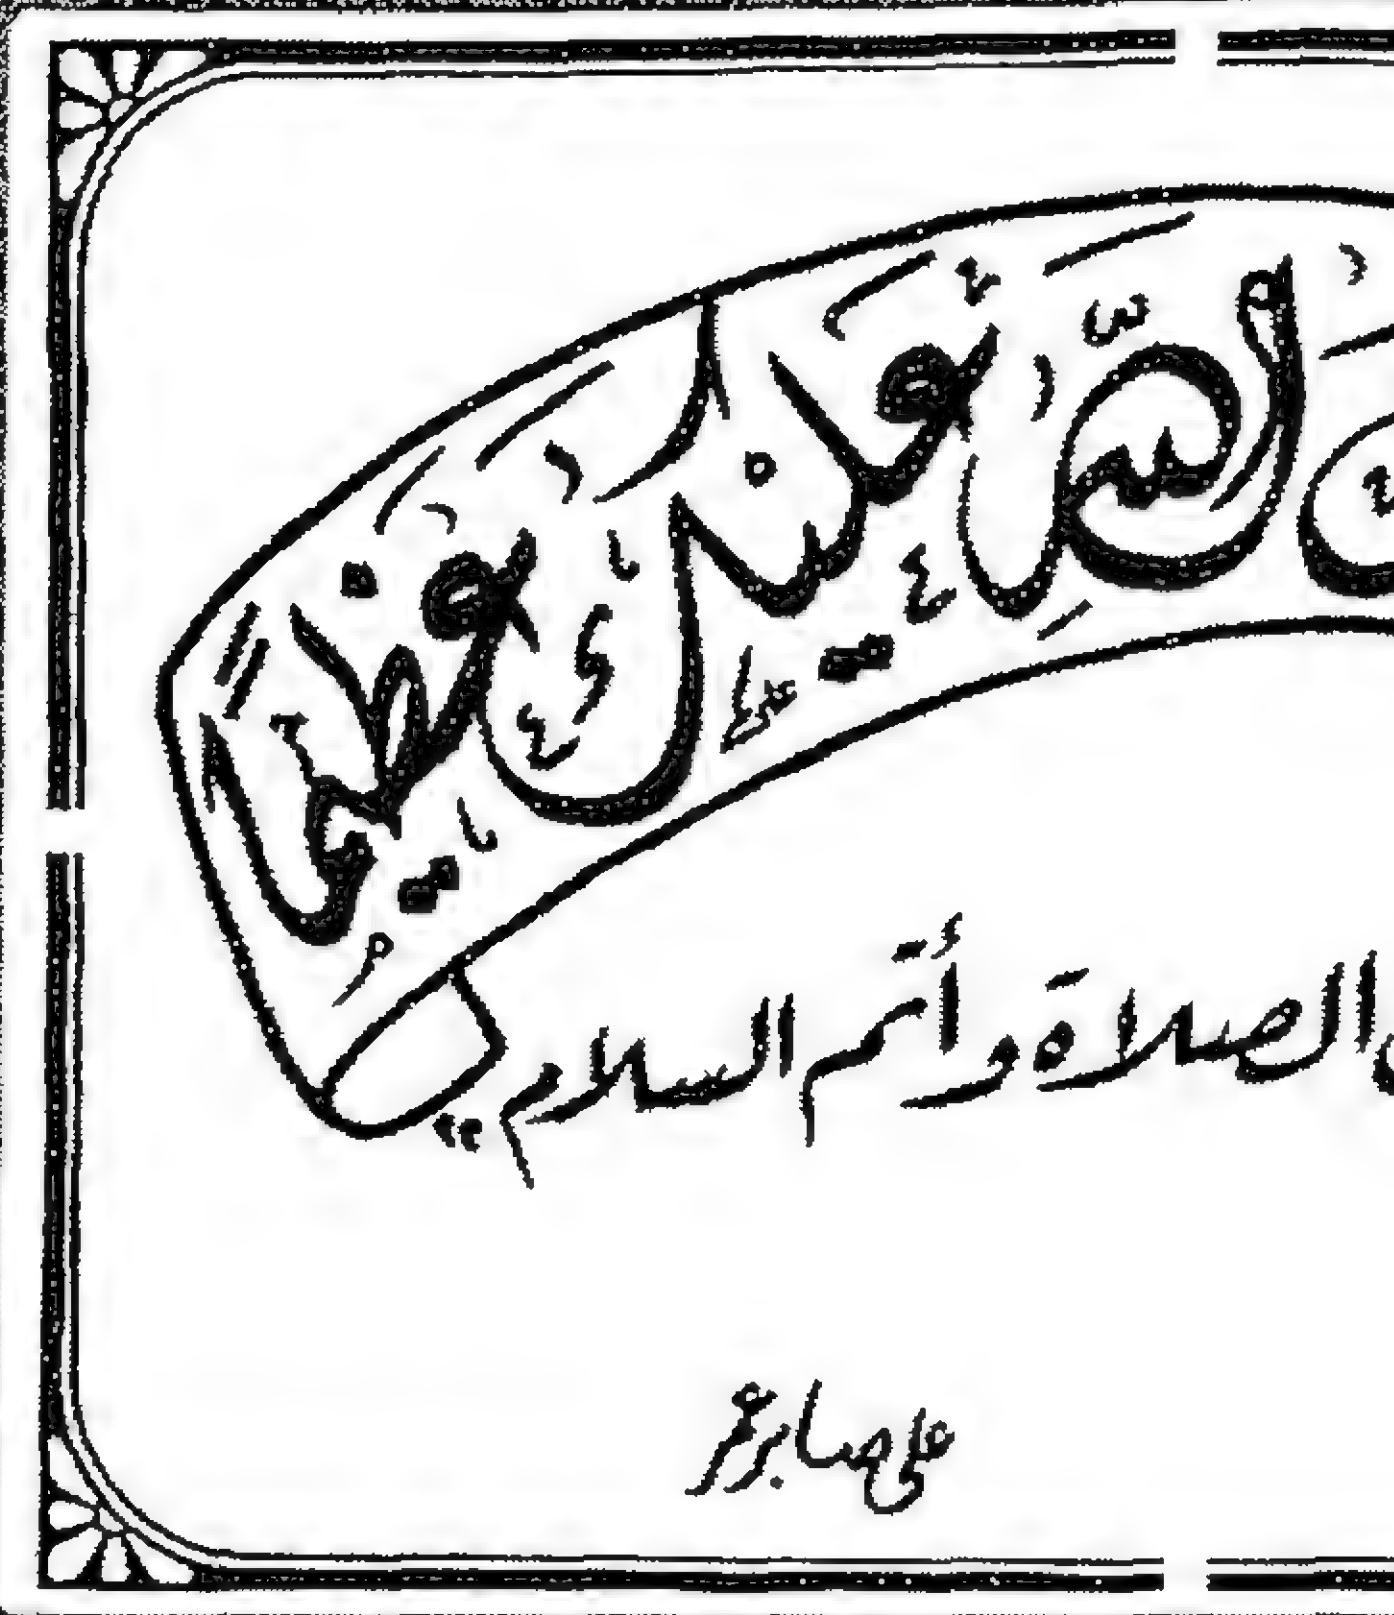 الله عليك عظيما
الصلاة وأتم السلام ""
علي صابر عمر